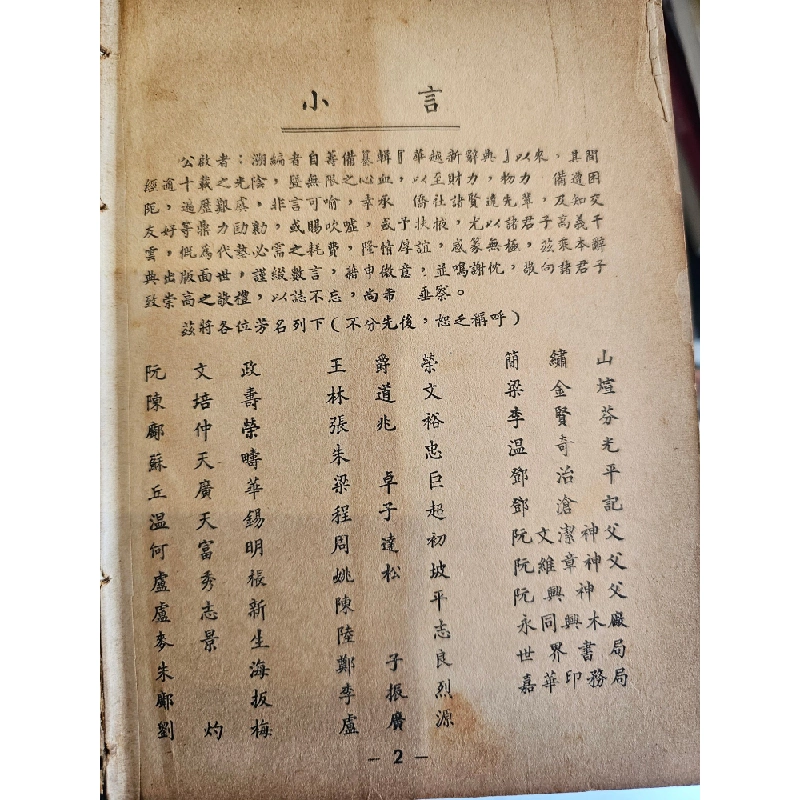 小言
公啟者：溯編者自籌備纂輯『華越新辭典』以來，其間
經適十載之光陰，盡無限之心血，以至財力，物力 備遭困
阨，遍歷艱虞，非言可喻，幸承 僑社諸賢達先輩，及知交
友好等鼎力劻勷，或賜吹噓，或予扶掖，尤以諸君子高義干
雲，慨為代墊必需之耗費，隆情厚誼，感篆無極，茲乘本辭
典出版面世，謹綴數言，藉申微意，並鳴謝忱，敬向諸君子
致崇高之敬禮，以誌不忘，尚希 垂察。
茲將各位芳名列下（不分先後，恕乏稱呼）
阮文政 王爵榮 簡繡山
陳培壽 林道文 梁金煊
鄺仲榮 張兆裕 李賢芬
蘇天疇 朱忠 温奇光
丘廣華 梁卓巨 鄧治平
温天錫 程子起 鄧滄記
何富明 周達初 阮文潔神父
盧秀振 姚松坡 阮維章神父
盧志新 陳平 阮興神父
麥景生 陸志 永同興木廠
朱海 鄭子良 世界書局
鄺扳 李振烈 嘉華印務局
劉灼梅 盧廣源
- 2 -